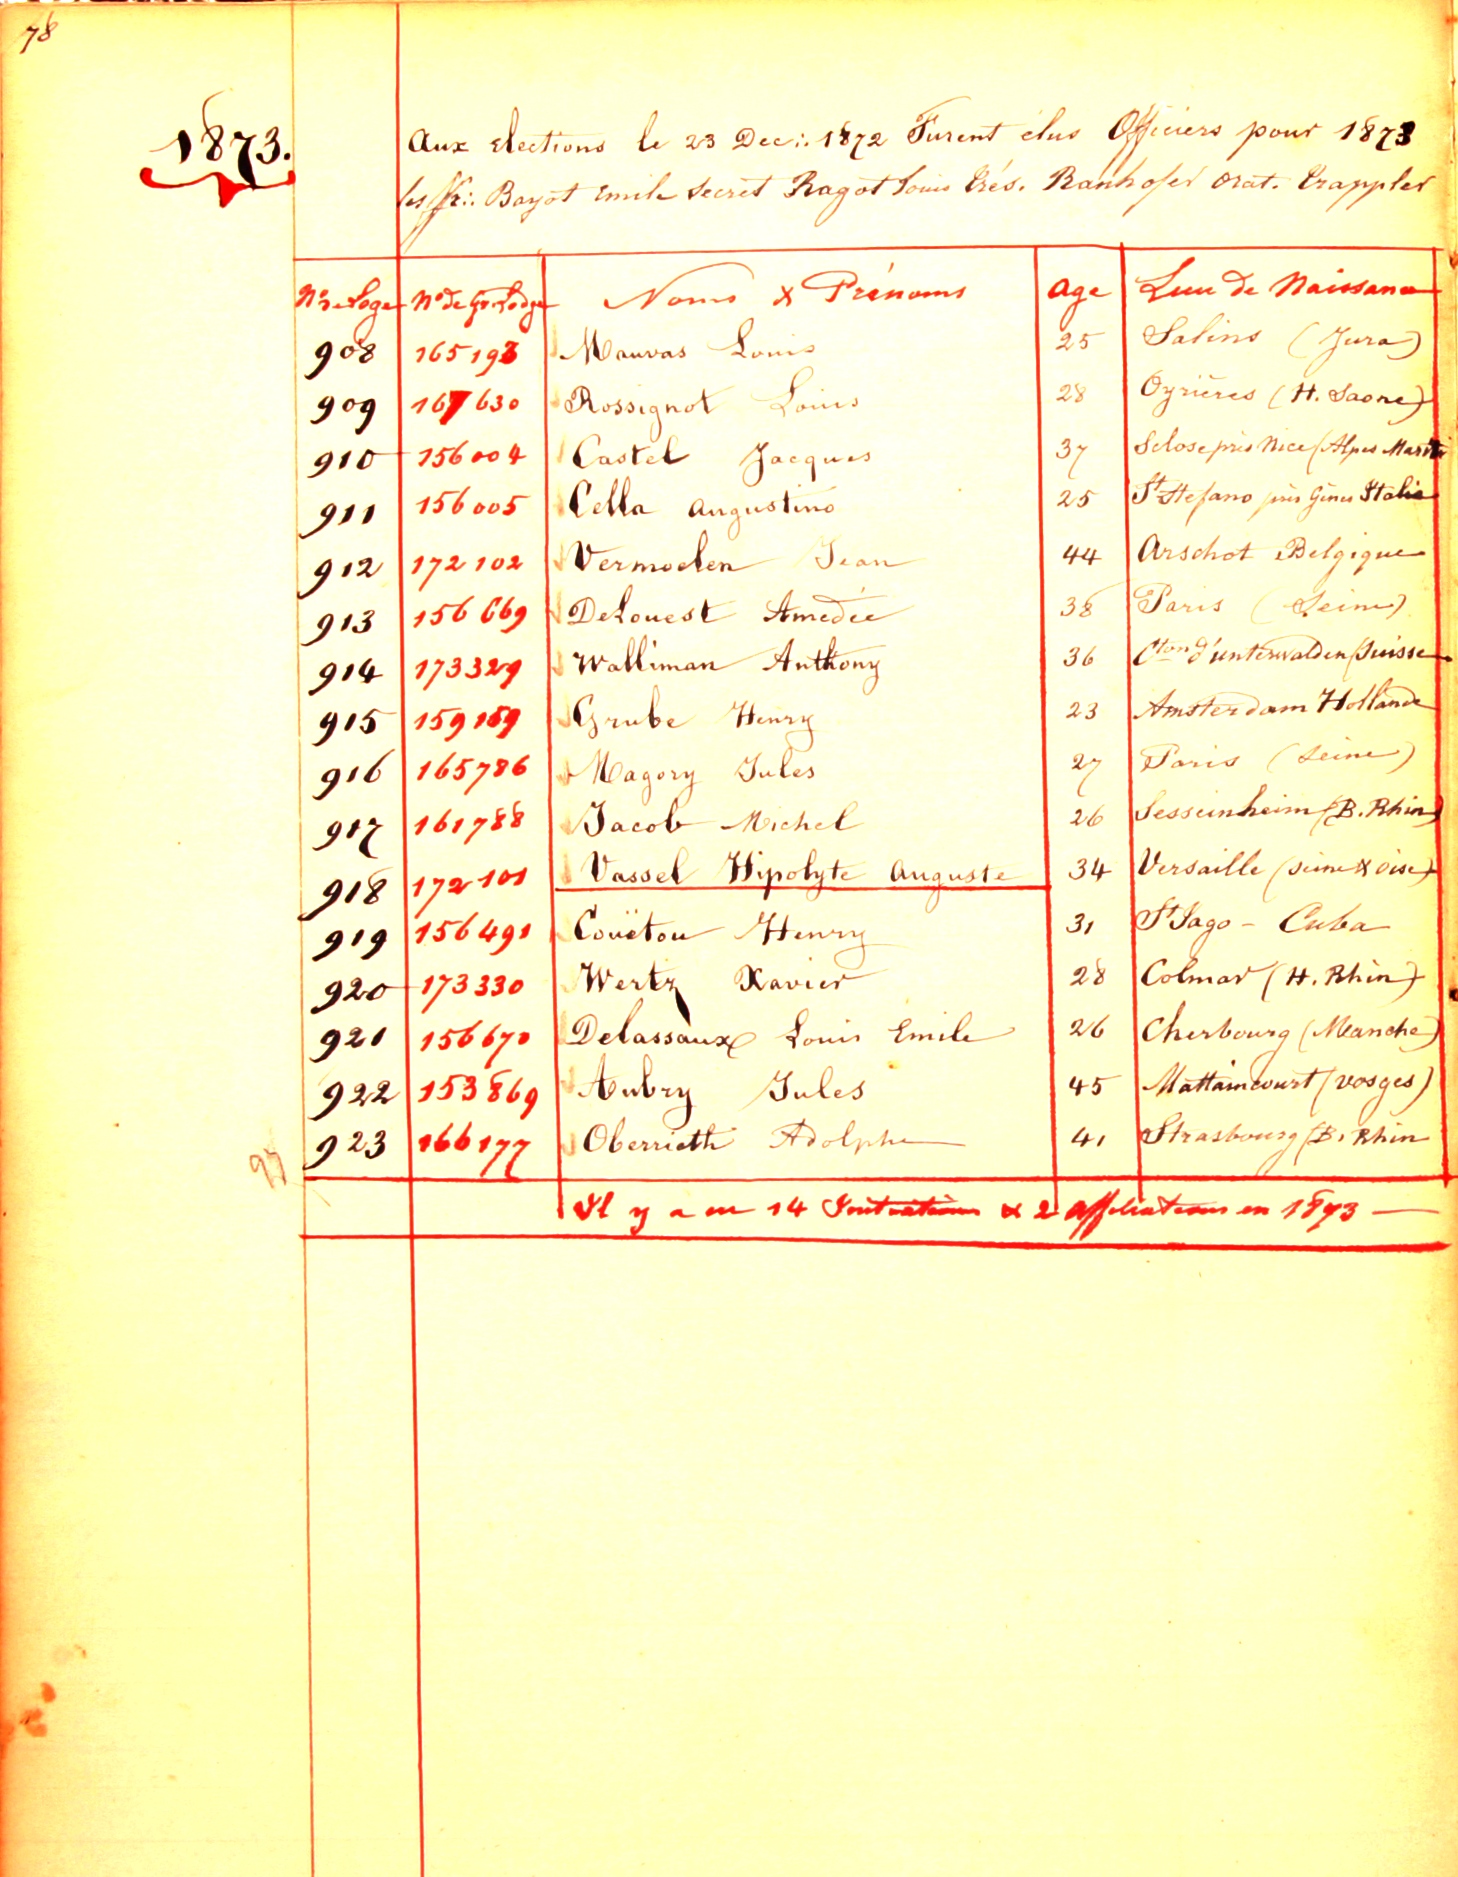 78
1873.
Aux elections le 23 Dec∴ 1872 Furent élus Officiers pour 1873
les ff∴ Bayot Emile Secret Ragot Louis Trés. Ranhofer Orat. Trappler
No de Loge No de Gr. Lodge Noms & Prénoms Age Lieu de Naissance
908 165193 Mauvas Louis 25 Salins (Jura)
909 167630 Rossignot Louis 28 Oyrières (H. Saone)
910 156004 Castel Jacques 37 Sclose près Nice (Alpes Mariti
911 156005 Cella Augustino 25 St Stefano près Gênes Italie
912 172102 Vermoelen Jean 44 Arschot Belgique
913 156669 DeLouest Amedée 38 Paris (Seine)
914 173329 Walliman Anthony 36 Cton d'unterwalden (Suisse
915 159159 Grube Henry 23 Amsterdam Hollande
916 165786 Magory Jules 27 Paris (Seine)
917 161788 Jacob Michel 26 Sesseinheim (B. Rhin)
918 172101 Vassel Hipolyte Auguste 34 Versaille (Seine & Oise)
919 156491 Couëtou Henry 31 St Jago - Cuba
920 173330 Wertz Xavier 28 Colmar (H. Rhin)
921 156670 Delassaux Louis Emile 26 Cherbourg (Manche)
922 153869 Aubry Jules 45 Mattaincourt (Vosges)
923 166177 Oberrieth Adolphe 41 Strasbourg (B. Rhin
Il y a eu 14 Initiations & 2 affiliations en 1873